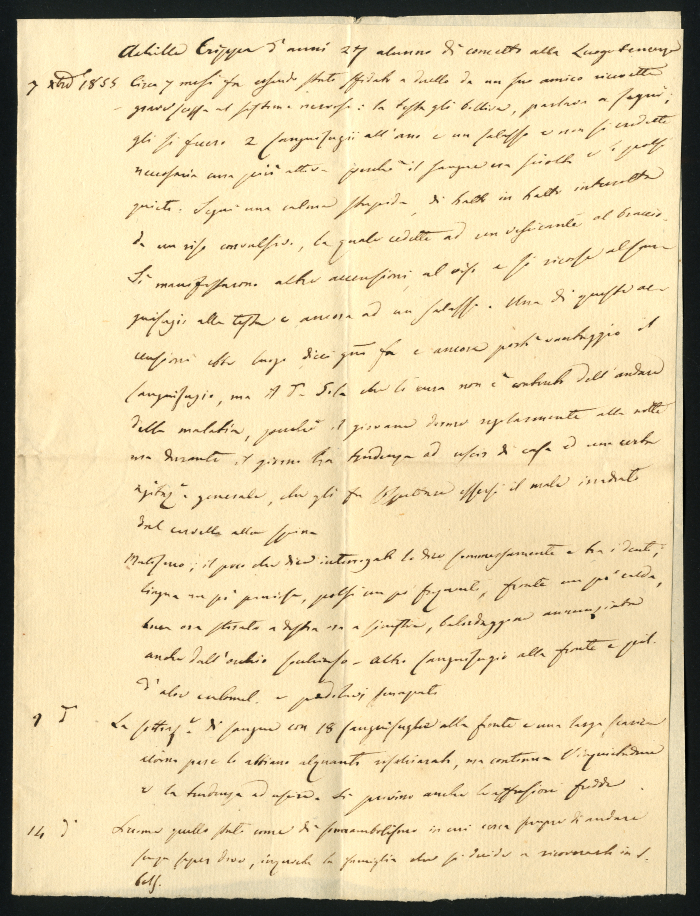 Achille Crippa d'anni 27 alunno di concetto alla Luogotenenza
7 xbre 1855 Circa 7 mesi fa essendo stato sfidato a duello da un suo amico ricevette
grave scossa al sistema nervoso: la testa gli bolliva, parlava a segni;
gli si fecero 2 sanguisugii all'ano e un salasso e non si credette
necessaria cura più attiva perchè il sangue era sciolto e i polsi
quieti. Seguì una calma stupida, di tratto in tratto interrotta
da un riso convulsivo, la quale cedette ad un vescicante al braccio.
Si manifestarono altre accensioni al viso e si ricorse al san-
guisugio alla testa e ancora ad un salasso. Una di queste ac-
censioni ebbe luogo dieci giorni fa e ancora portò vantaggio il
sanguisugio, ma il Dr che lo cura non è contento dell'andare
della malattia, perchè il giovane dorme regolarmente alla notte
ma durante il giorno ha tendenza ad uscir di casa ed una certa
agitazne generale, che gli fa sospettare essersi il male irradiato
dal cervello alla spina
; il poco che dice interrogato lo dice sommessamente e tra i denti;
lingua un po' , polsi un po' frequenti, fronte un po' calda,
bocca ora stirata a destra ora a sinistra, balordaggine annunziata
anche dall'occhio - altro sanguisugio alla fronte e pil.
d'aloe calomel. e pediluvj senapati
9 d La sottraze di sangue con 18 sanguisughe alla fronte e una larga scarica
alvina pare lo abbiano alquanto rischiarato, ma continua l'inquietudine
e la tendenza ad uscire. Si provino anche le affusioni fredde
14 d quello stato come di sonnambolismo in cui cerca sempre di andare
senza saper dove, la famiglia che si decide a ricoverarlo in S.
Cels.